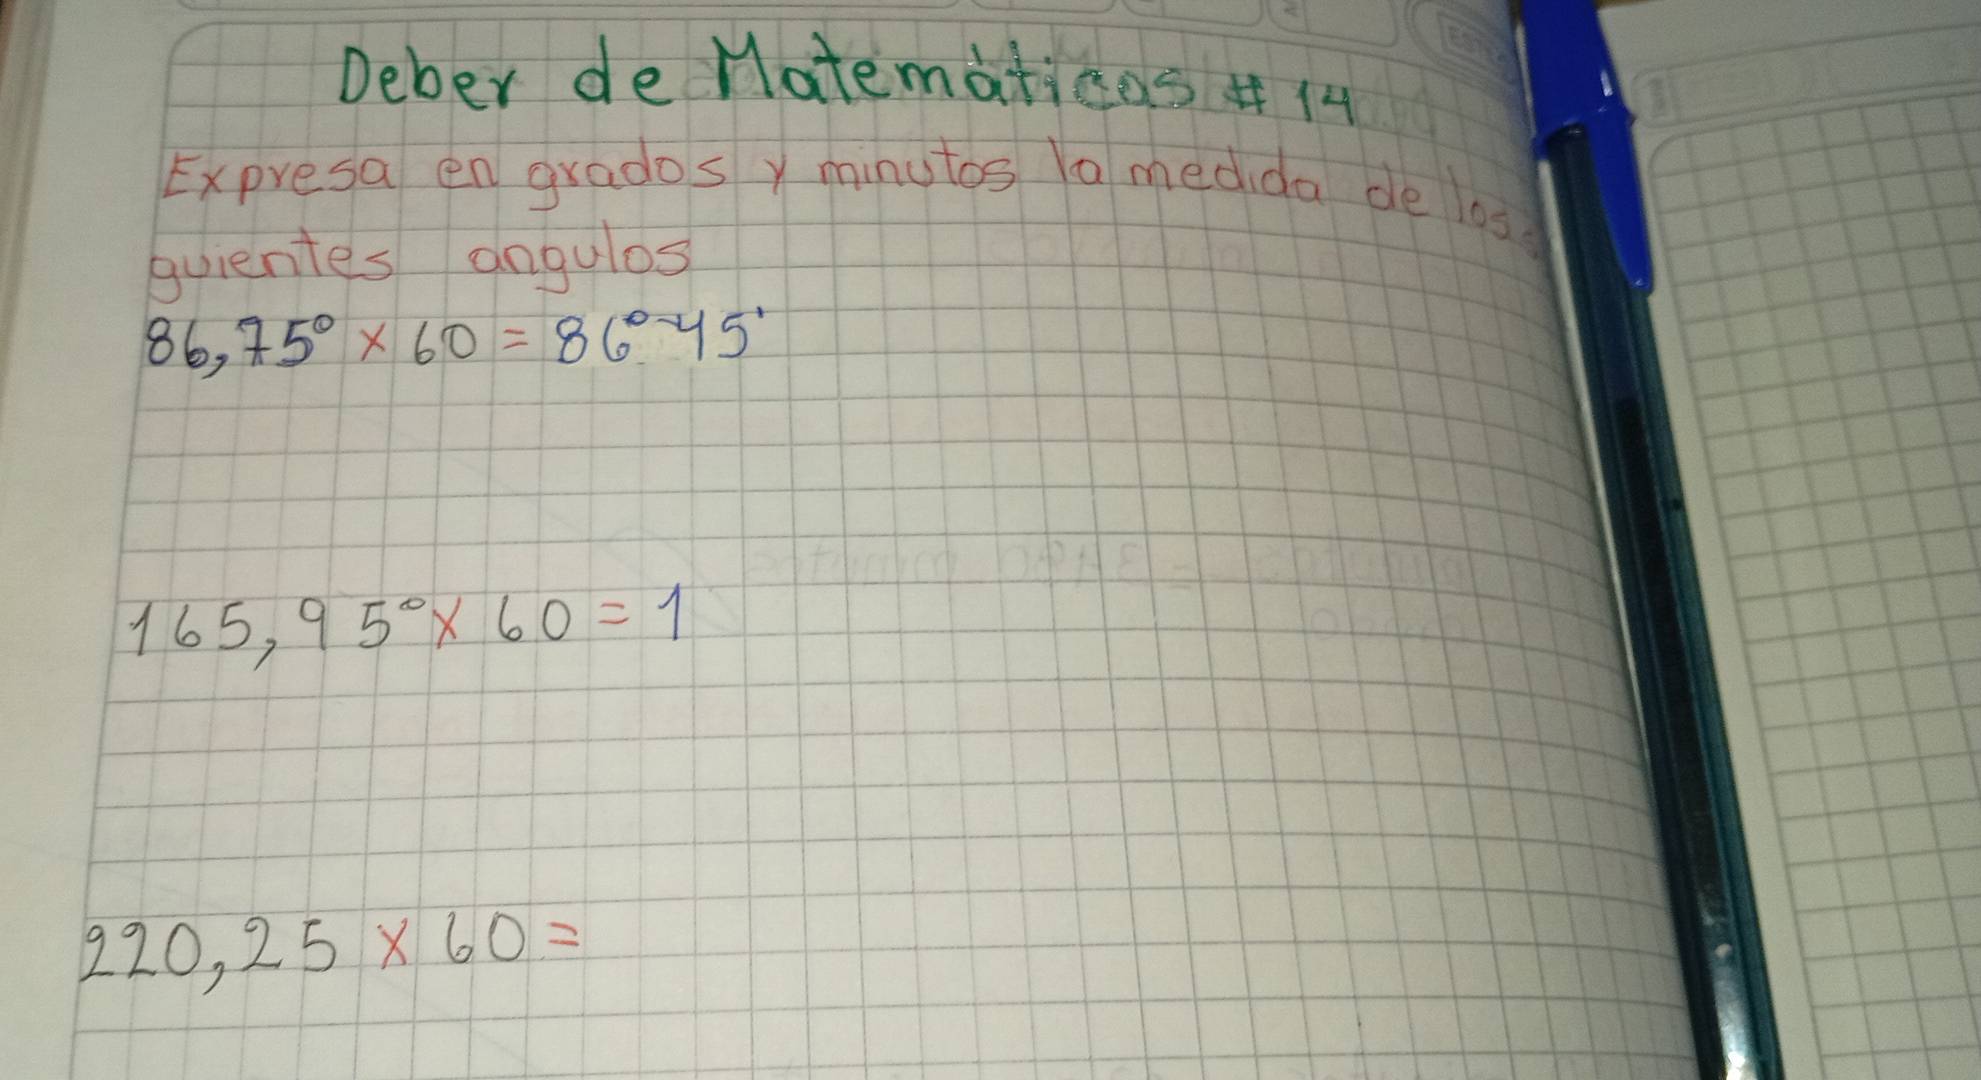 Deber de Matemáticas # 14
Expresa en grados y minutos la medida de los
guientes angulos
86,75° x 60 = 86° 45'
165,95° x 60 = 1
220,25 x 60 =